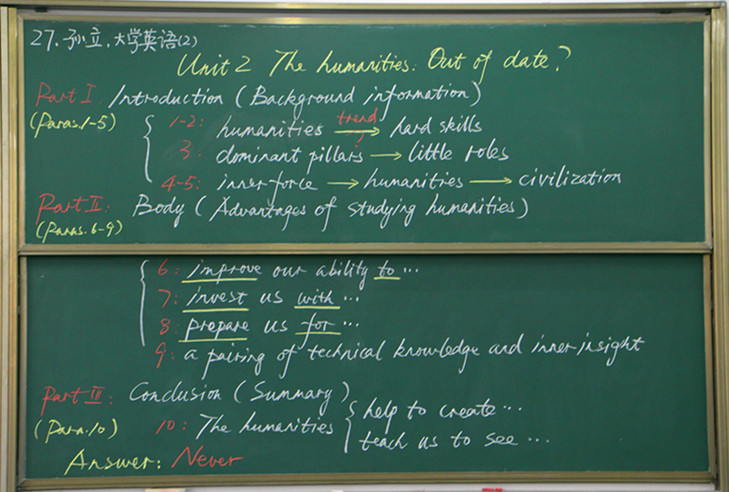 27. 孙立. 大学英语(2)
Unit 2 The humanities: Out of date?
Part I Introduction (Background information)
(Paras. 1-5)
1-2: humanities trend → hard skills
3: dominant pillars → little roles
4-5: inner force → humanities → civilization
Part II: Body (Advantages of studying humanities)
(Paras. 6-9)
6: improve our ability to ...
7: invest us with ...
8: prepare us for ...
9: a pairing of technical knowledge and inner insight
Part III: Conclusion (Summary)
(Para. 10)
10: The humanities { help to create ...
teach us to see ...
Answer: Never